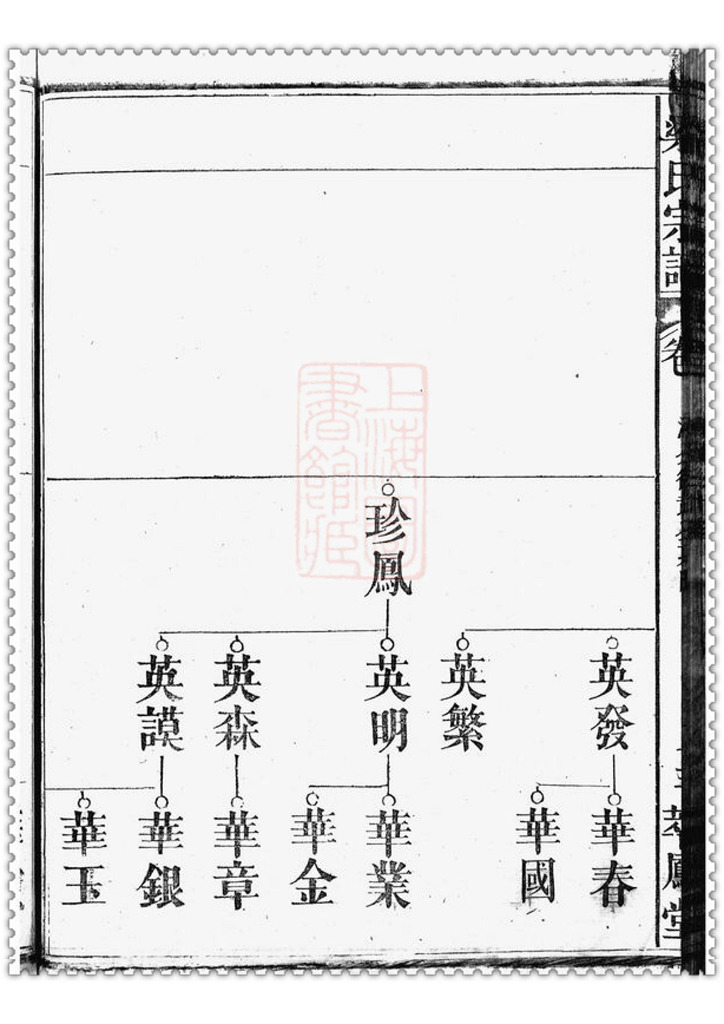 氏宗譜
卷
鳳堂
珍鳳
英發
英繁
英明
英森
英謨
華春
華國
華業
華金
華章
華銀
華玉
上海圖書館藏